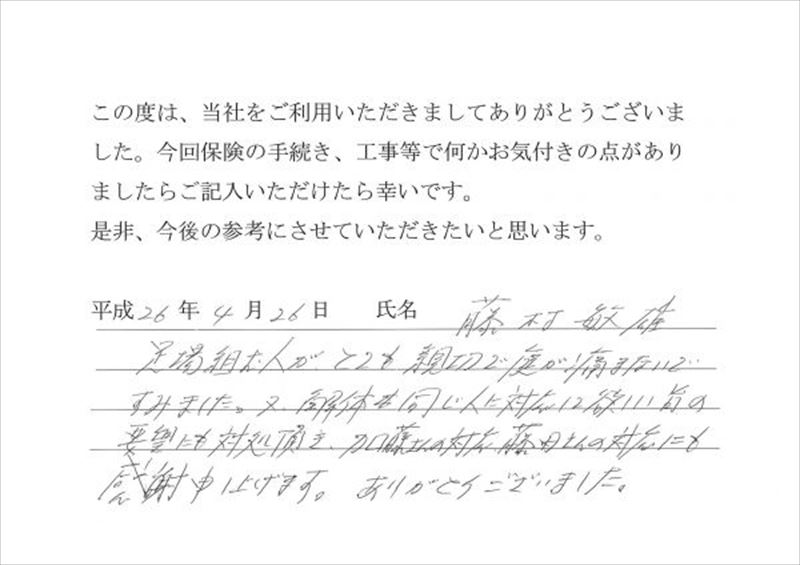 この度は、当社をご利用いただきましてありがとうございま
した。今回保険の手続き、工事等で何かお気付きの点があり
ましたらご記入いただけたら幸いです。
是非、今後の参考にさせていただきたいと思います。
平成26年4月26日 氏名 藤村敏雄
足場組む人が、とても親切で庭が痛まないで
すみました。又、解体も同じ人に対応して欲しい旨の
要望にも対処頂き、加藤さんの対応、藤田さんの対応にも
感謝申し上げます。ありがとうございました。